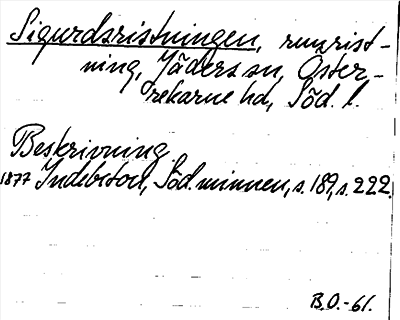 Sigurdsristningen, runrist-
ning, Jäders sn, Öster-
rekarne hd, Söd. l.
Beskrivning
1877 Indebetou, Söd. minnen, s. 189, s. 222.
B.O.-61.